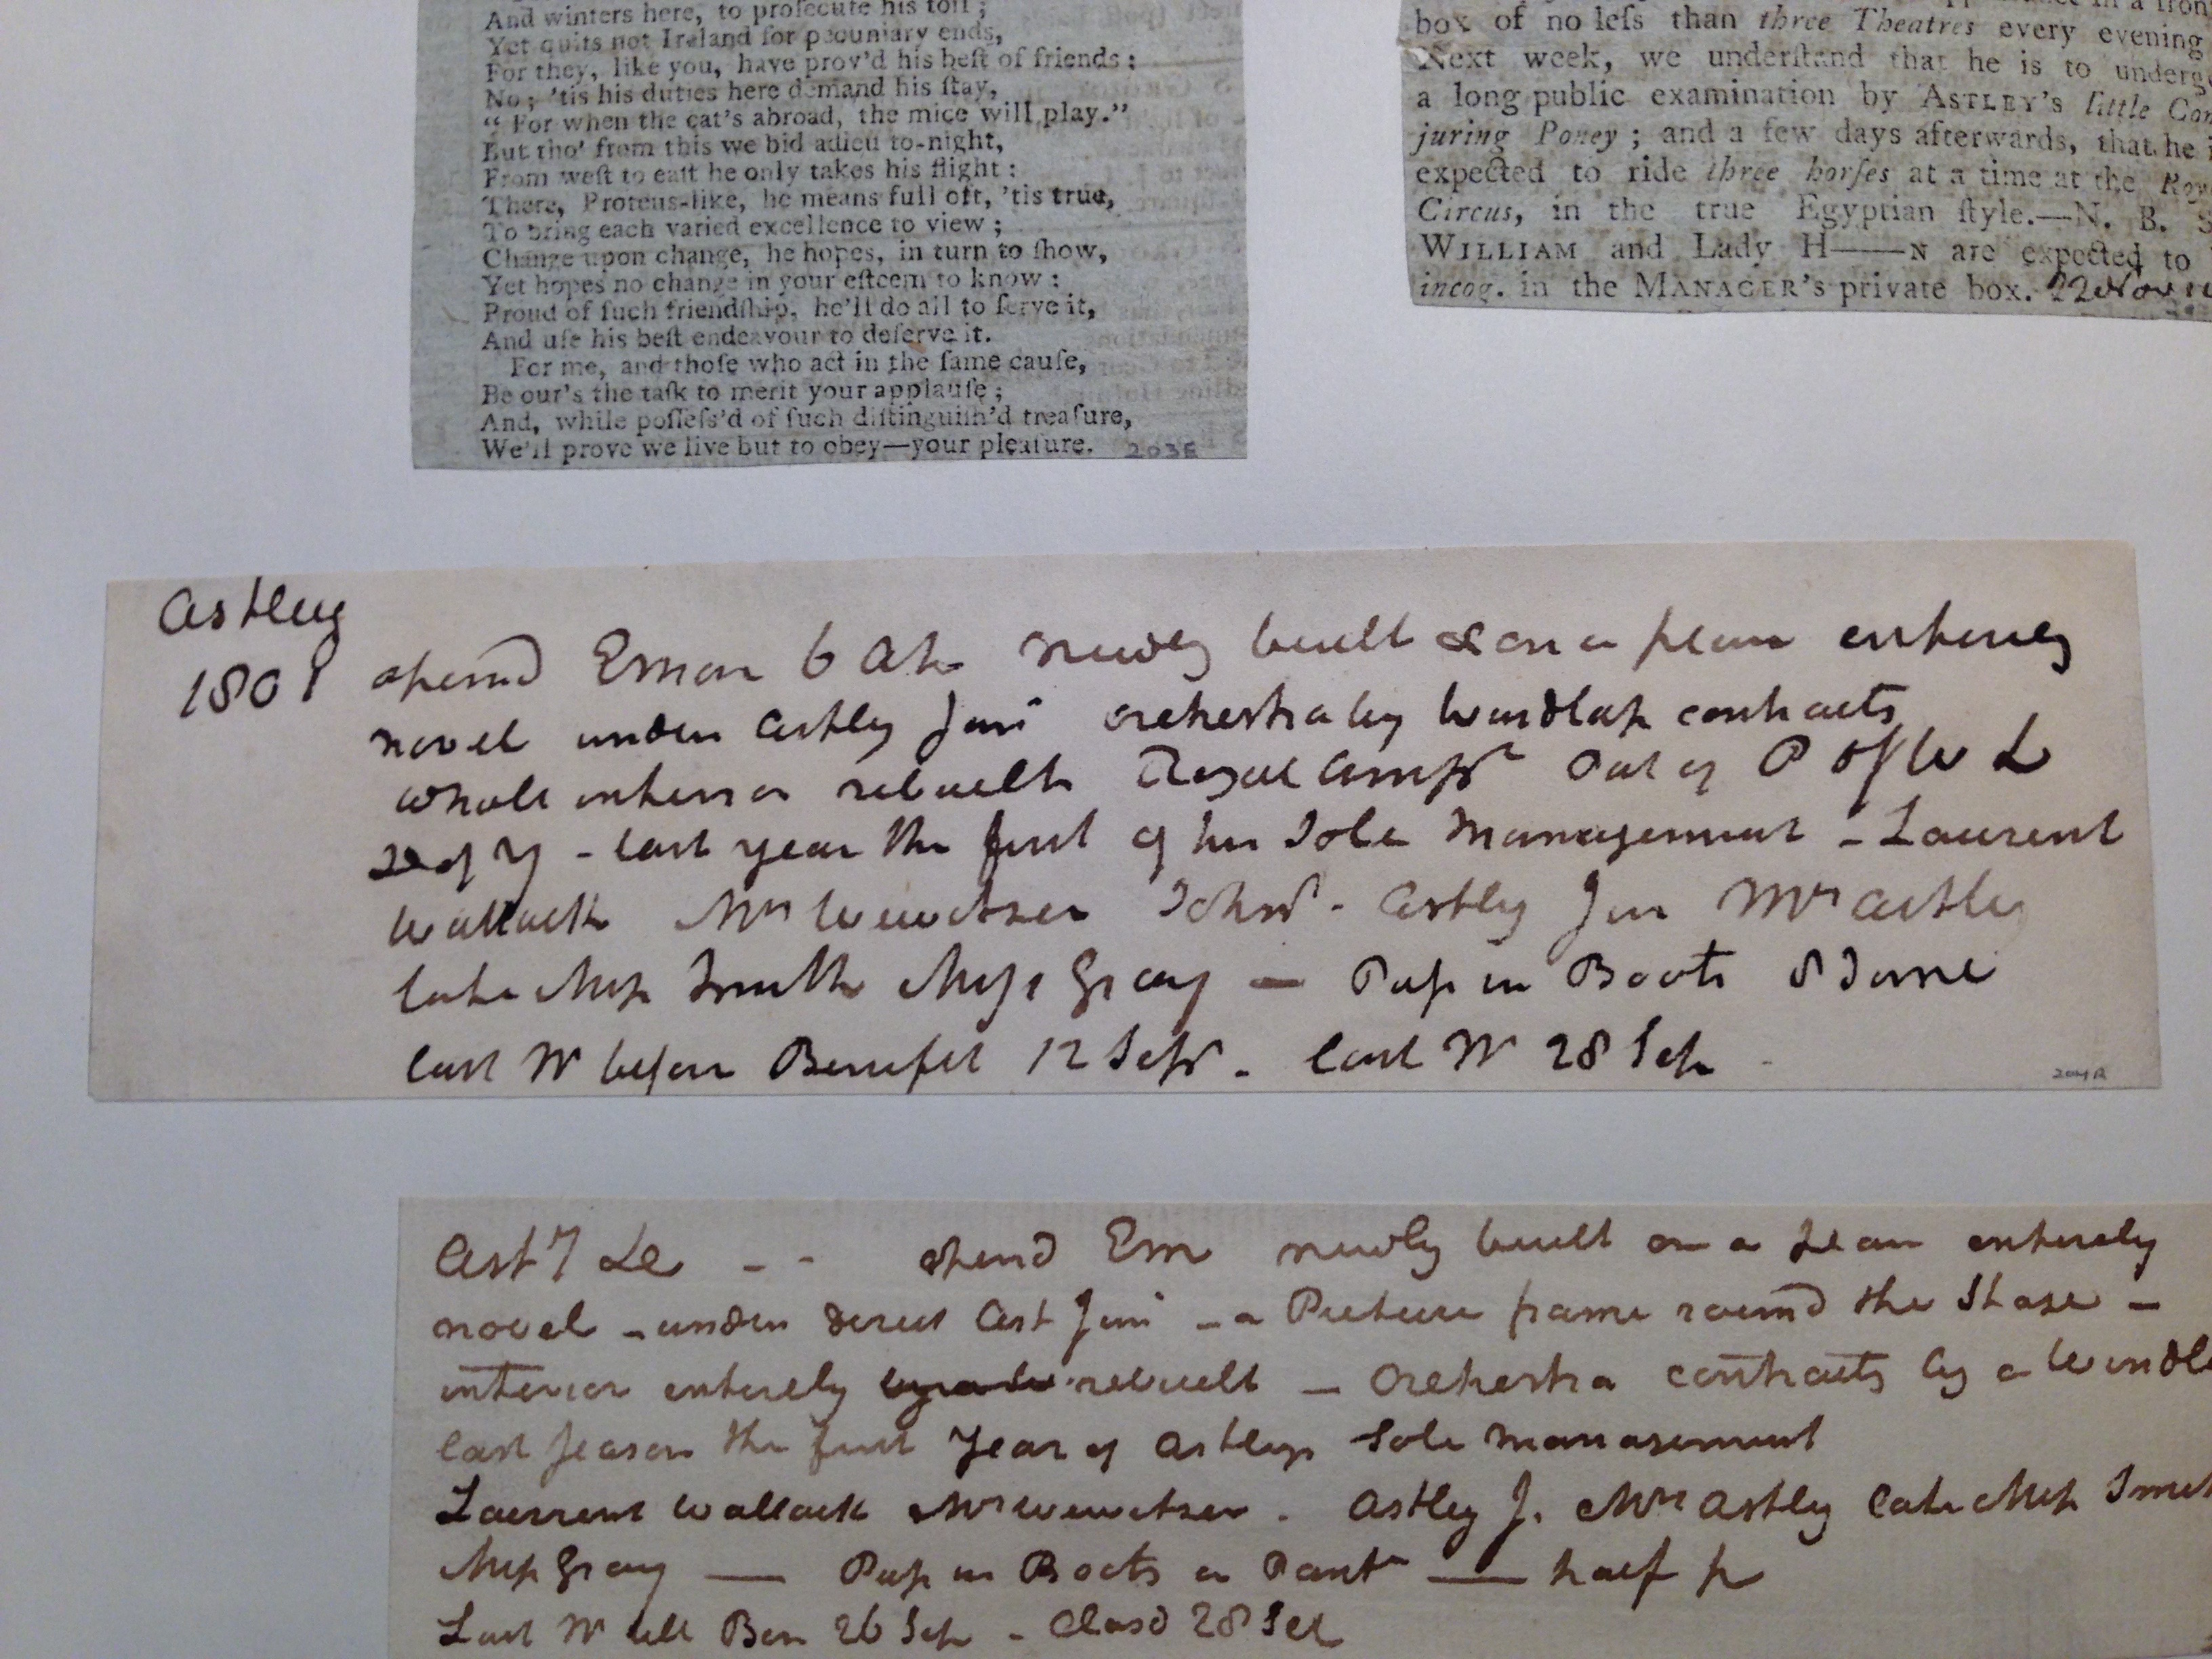 And winters here, to proſecute his toil;
Yet quits not Ireland for pecuniary ends,
For they, like you, have prov'd his beſt of friends:
No; 'tis his duties here demand his ſtay,
"For when the cat's abroad, the mice will play."
But tho' from this we bid adieu to-night,
From weſt to eaſt he only takes his flight:
There, Proteus-like, he means full oft, 'tis true,
To bring each varied excellence to view;
Change upon change, he hopes, in turn to ſhow,
Yet hopes no change in your eſteem to know:
Proud of ſuch friendſhip, he'll do all to ſerve it,
And uſe his beſt endeavour to deſerve it.
For me, and thoſe who act in the ſame cauſe,
Be our's the taſk to merit your applauſe;
And, while poſſeſs'd of ſuch diſtinguiſh'd treaſure,
We'll prove we live but to obey—your pleaſure.
203E
box of no leſs than three Theatres every evening
Next week, we underſtand that he is to underg
a long public examination by ASTLEY's little Con
juring Poney; and a few days afterwards, that he i
expected to ride three horſes at a time at the Roy
Circus, in the true Egyptian ſtyle.—N. B. S
WILLIAM and Lady H——N are expected to
incog. in the MANAGER's private box. 22 Nov
Astley
1801 opend Emon 6 Ap newly built & on a plan entirely
novel under Astley Jun orchestra by Windlass contracts
whole interior rebuilt Royal Amp Pat of P of W &
D of Y - last year the first of his Sole Management - Laurent
Wallack Mrs Wewitzer Johns - Astley Jun Mrs Astley
late Miss Smith Miss Gray — Puss in Boots 8 June
last N before Benefit 12 Sepr - last N 28 Sep
204A
Ast 7 Le - - opend Em newly built on a plan entirely
novel - under direct Ast Jun - a Picture frame round the Stage -
interior entirely rebuilt - Orchestra contracts by a Windl
last season the first Year of Astleys Sole management
Laurent Wallack Mrs Wewitzer. Astley J. Mrs Astley late Miss Smit
Miss Gray — Puss in Boots a Pant — half p
Last N till Ben 26 Sep - Closd 28 Sep